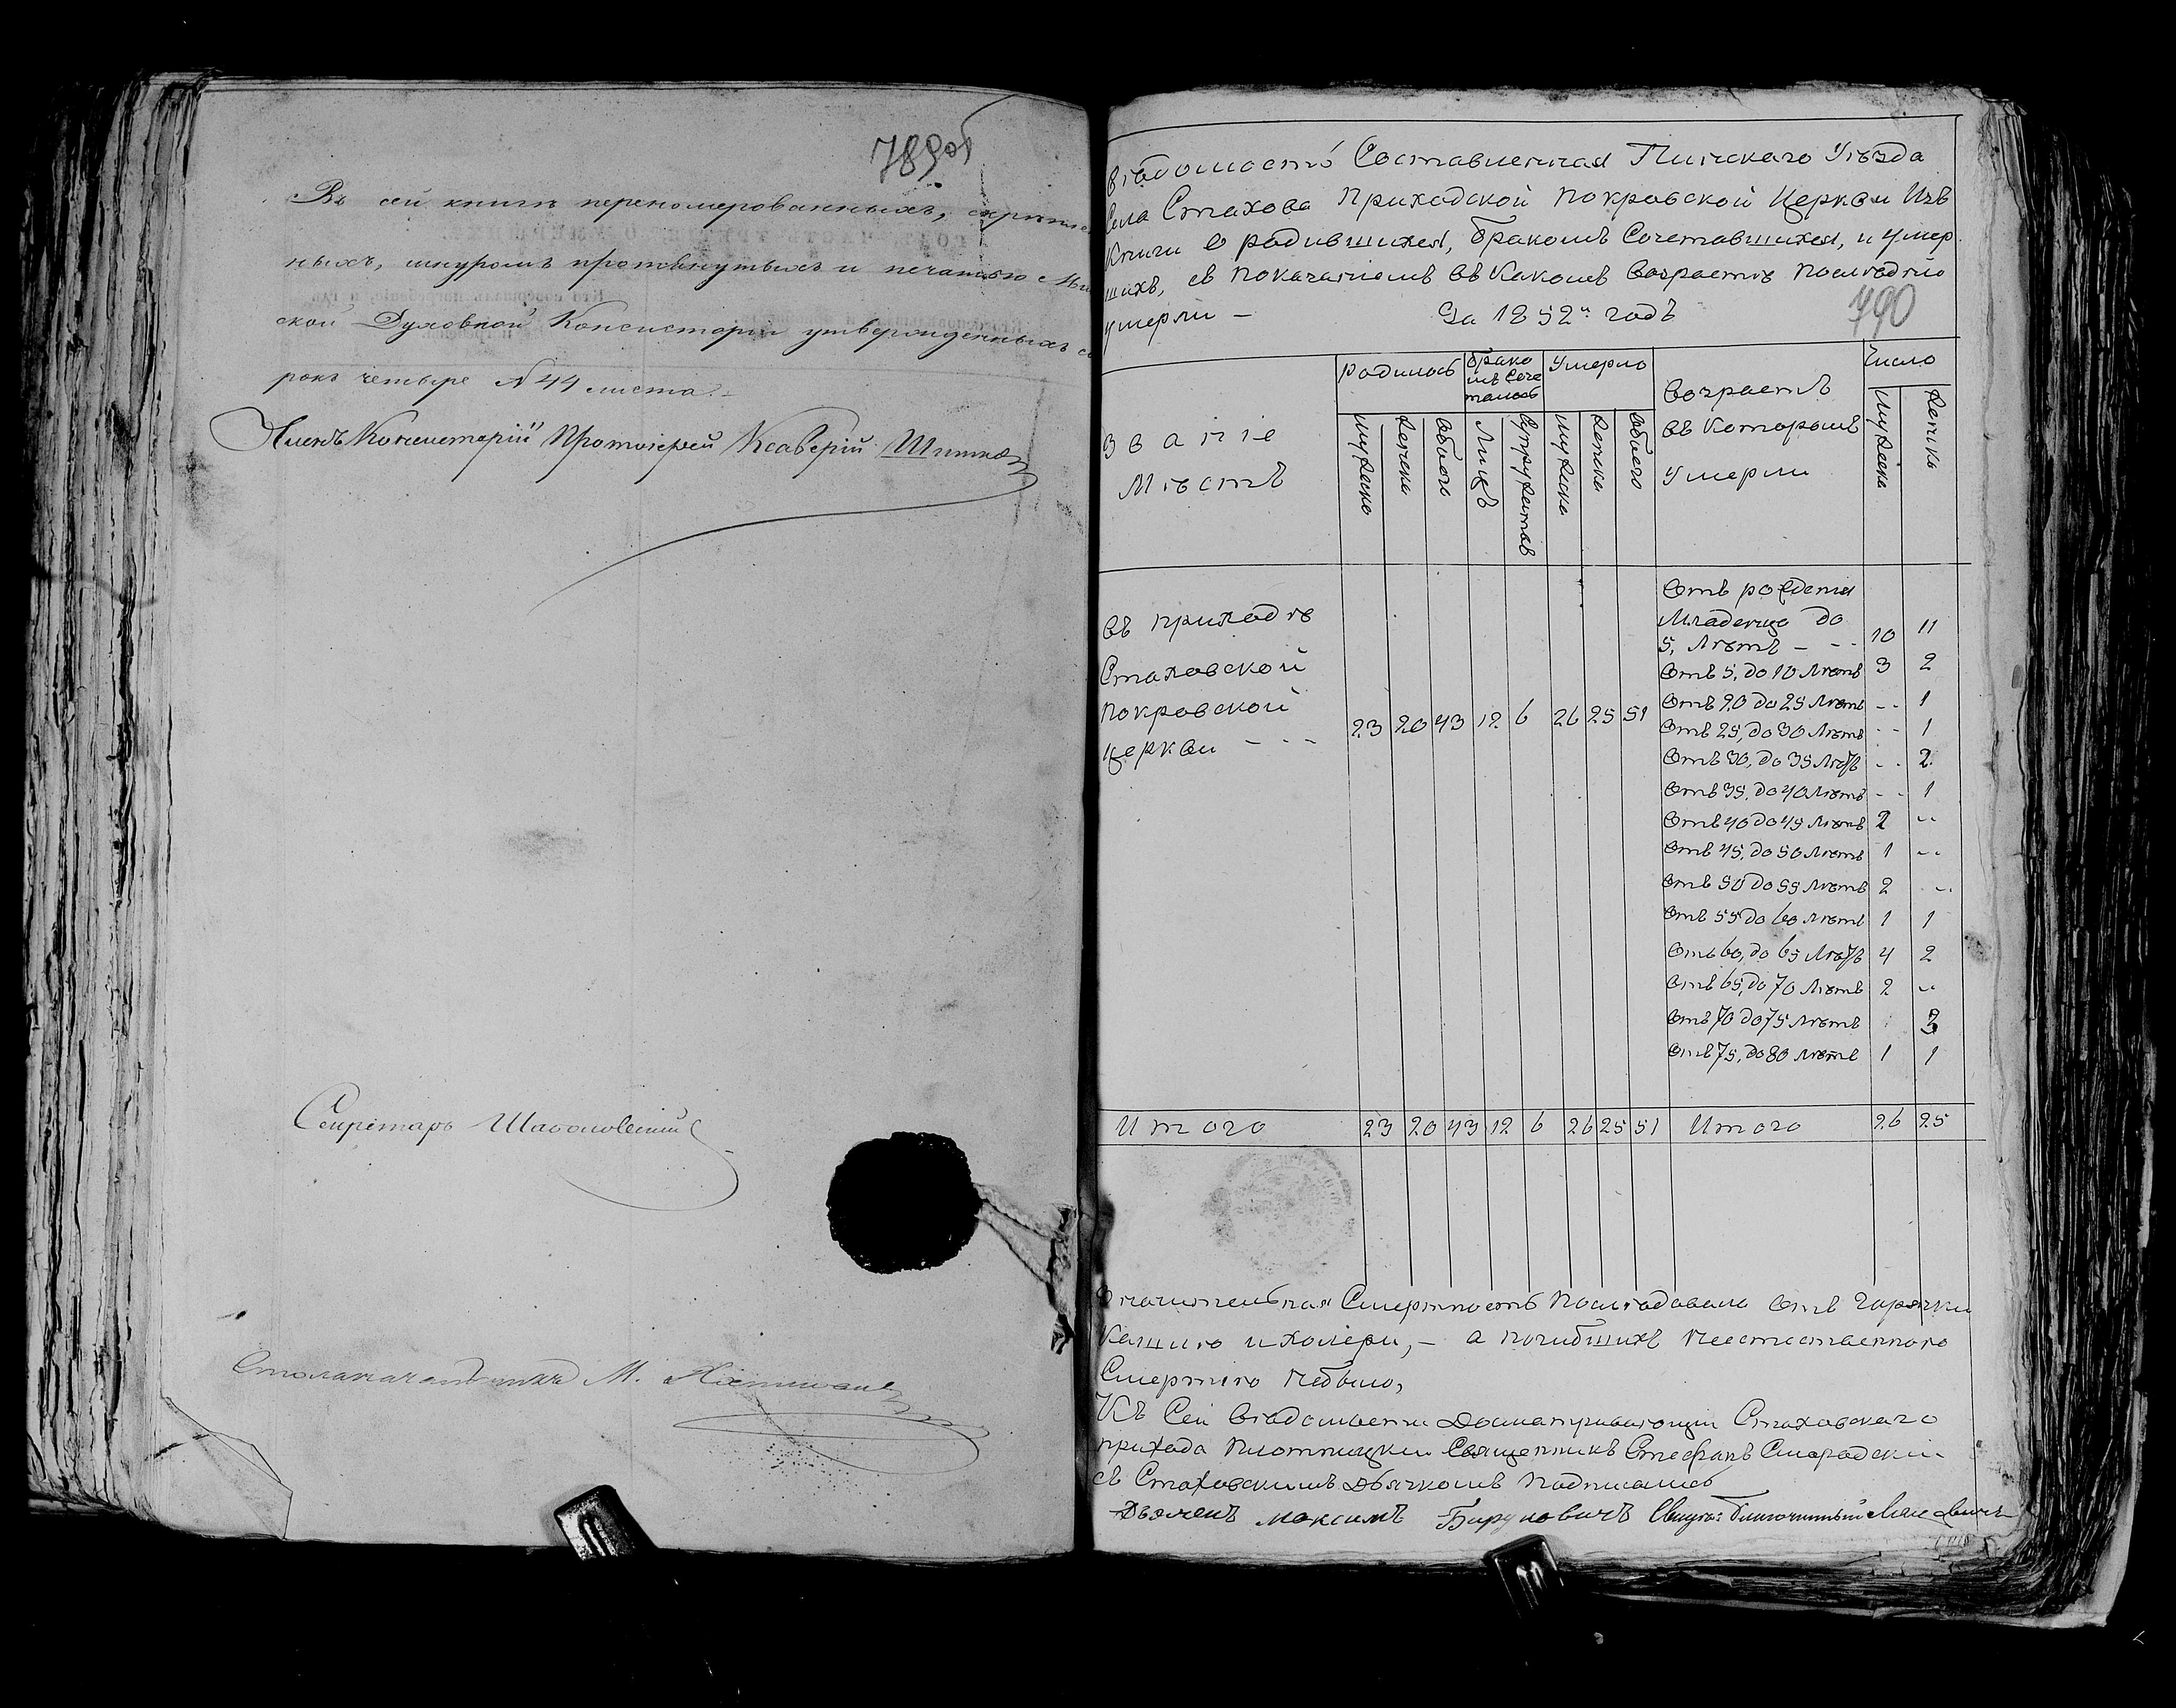 789об
Въ сей книгѣ перенумерованныхъ, скрѣплен
ныхъ, шнуромъ протянутыхъ и печатью Мин
ской Духовной Консисторіи утвержденныхъ со
рокъ четыре N 44 листа.
Членъ Консисторіи Протоіерей Ксаверій
Секретарь
Столоначальникъ М.
Вѣдомость Составленная Пинскаго Уѣзда
Села Стахова Приходской Покровской Церкви Изъ
Книги о родившихся, бракомъ Сочетавшихся, и умер
шихъ, съ показаніемъ въ какомъ возрастѣ послѣдніе
умерли – За 1852й годъ
790
Званіе
Мѣстъ
Родилось
брако
мъ Соче
талось
Умерло
Возрастъ
въ которомъ
Умерли
Число
Мужеска
Женска
Обоего
Лицъ
Супружествъ
Мужеска
Женска
Обоего
Мужеска
Женска
въ приходѣ
Стаховской
Покровской
церкви - - -
23 20 43 12 6 26 25 51
Отъ рожденія
Младенца до
5, лѣтъ - - - 10 11
Отъ 5, до 10 лѣтъ 3 2
Отъ 20 до 25 лѣтъ - - 1
Отъ 25, до 30 лѣтъ - - 1
Отъ 30, до 35 лѣтъ - - 2
Отъ 35, до 40 лѣтъ - - 1
Отъ 40 до 45 лѣтъ 2 - -
Отъ 45, до 50 лѣтъ 1 - -
Отъ 50 до 55 лѣтъ 2 - -
Отъ 55 до 60 лѣтъ 1 1
Отъ 60, до 65 лѣтъ 4 2
Отъ 65, до 70 лѣтъ 2 - -
Отъ 70 до 75 лѣтъ 3
Отъ 75, до 80 лѣтъ 1 1
Итого 23 20 43 12 6 26 25 51 Итого 26 25
Значительная Смертность послѣдовала отъ горячки
Кашлю и холеры, – а погибшихъ неестественною
Смертію небыло,
Къ Сей вѣдомости Досматривающій Стаховскаго
прихода Плотницкій Священникъ Стефанъ Смородскій
съ Стаховскимъ Дьячкомъ подписались
Дьячекъ Максимъ Бируковичъ благочинный